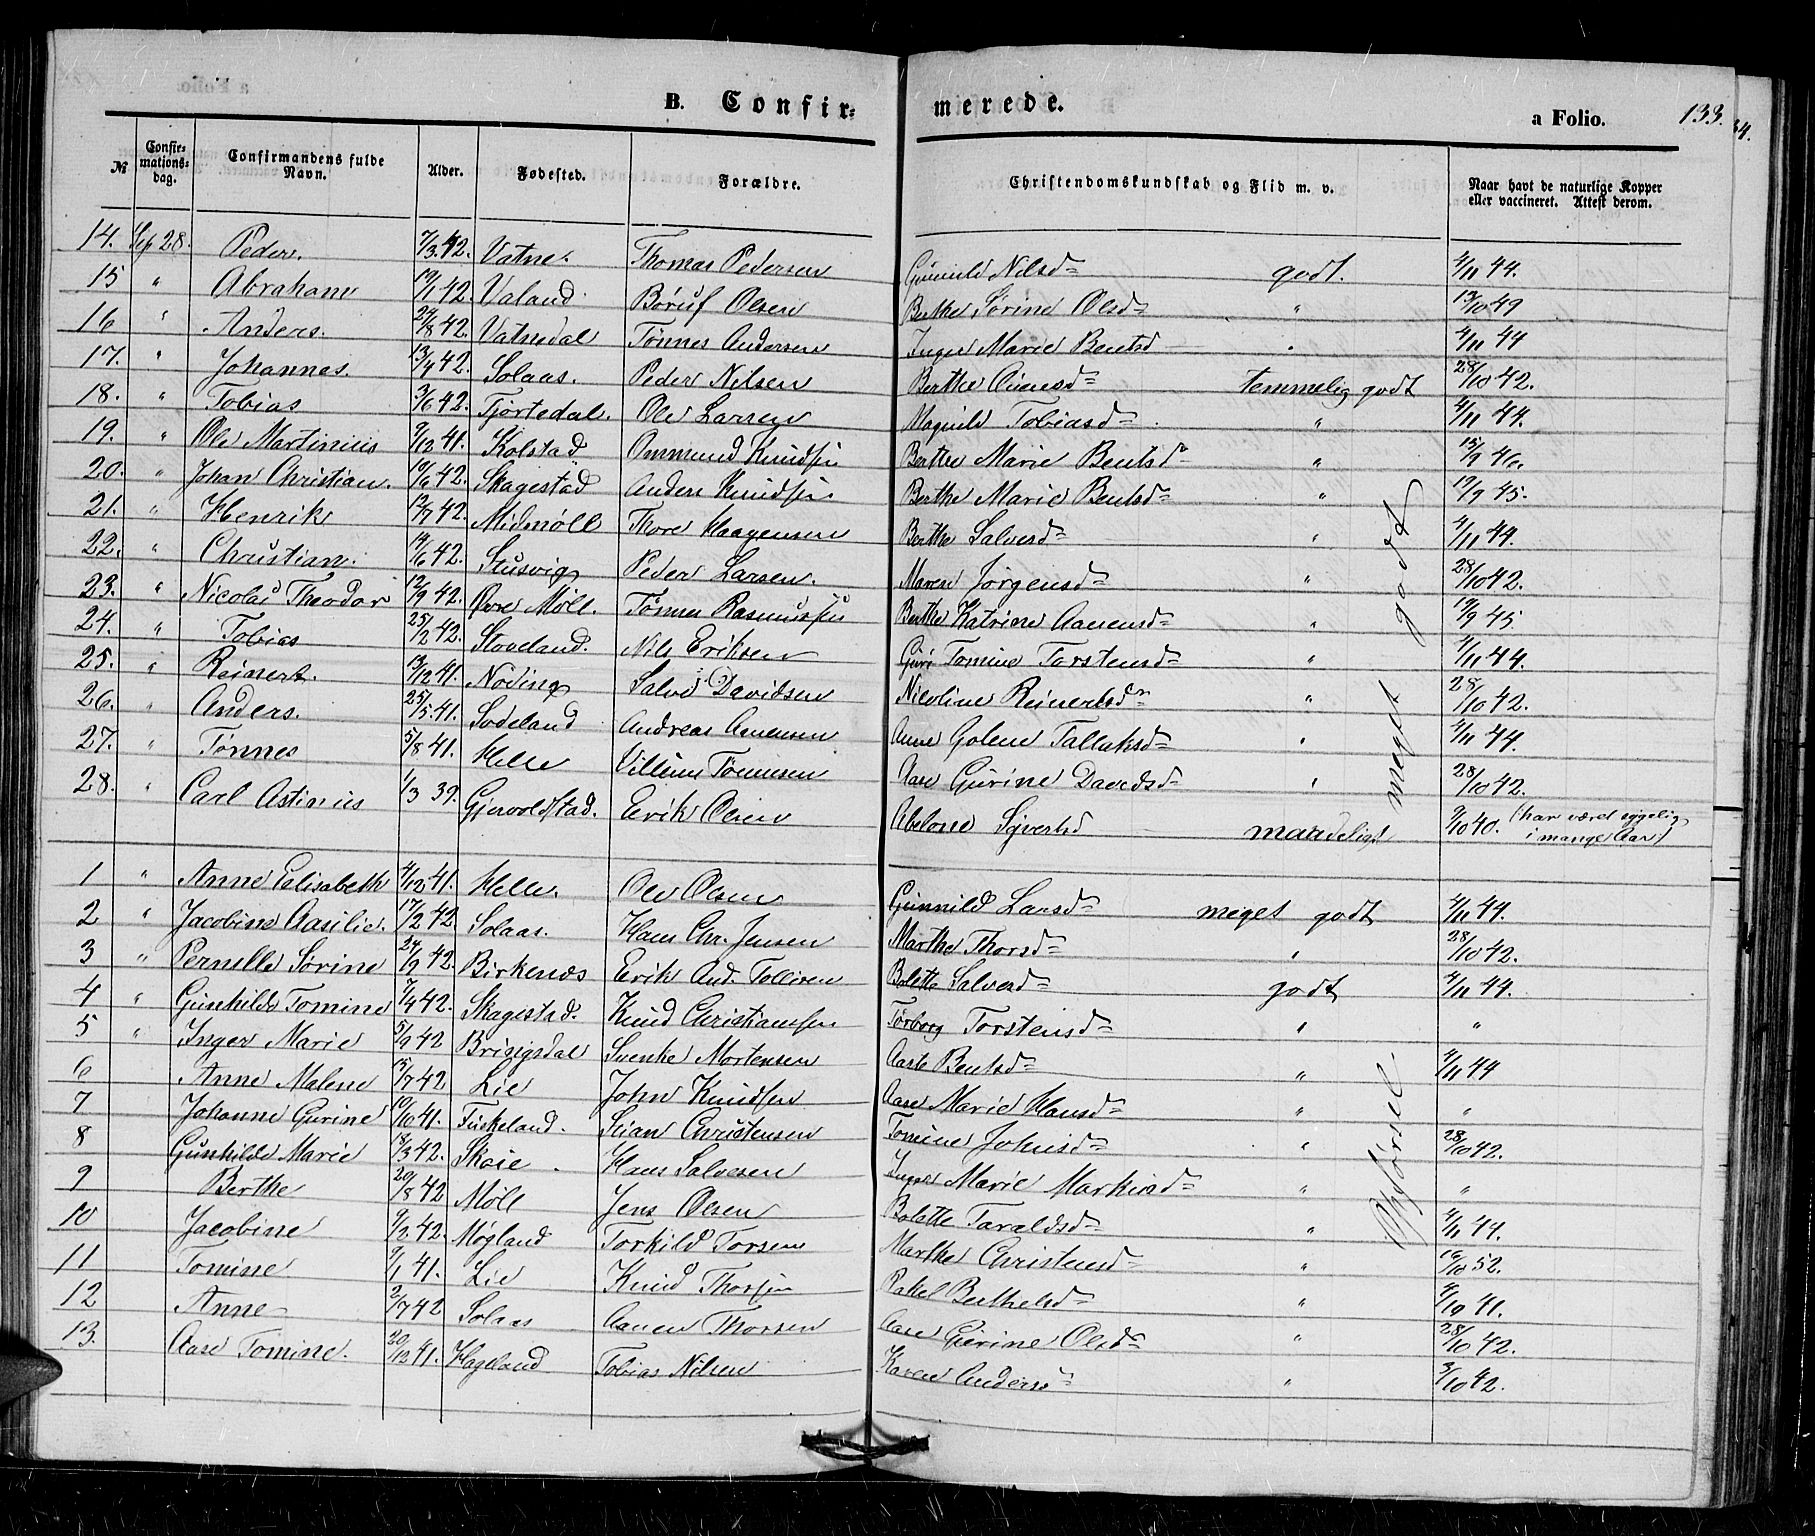 B. Confir= merede. a Folio. 133.
№ Confir= mations= dag. Confirmandens fulde Navn. Alder. Fødested. Forældre. Christendomskundskab og Flid m. v. Naar havt de naturlige Kopper eller vaccineret. Attest derom.
14. Sep 28. Peder. 7/3 42. Vatne. Thomas Pedersen Gunild Nilsd= godt. 4/11 44.
15 " Abraham 19/1 42. Valand Børuf Olsen Berthe Sørine Olsd= " 13/10 49
16 " Anders. 24/8 42. Vatnedal Tønnes Andersen Inger Marie Bentsd " 4/11 44
17. " Johannes. 13/4 42. Solaas. Peder Nilsen Berthe temmelig godt 28/10 42.
18. " Tobias 3/6 42. Tjortedal. Ole Larsen Magnild Tobiasd= " 4/11 44.
19. " Ole Martinius 9/12 41. Kolstad Ommund Knudsen Berthe Marie Bentsd= " 15/9 46.
20. " Johan Christian. 10/6 42. Skagestad Anders Knudsen Berthe Marie Bentsd= " 19/9 45.
21. " Henrik 12/9 42. Midmøll Thore Haagensen Berthe Salvesd= " 4/11 44.
22. " Christian. 14/6 42. Stusvig Peder Larsen. Maren Jørgensd= " 28/10 42.
23. " Nicolai Theodor 12/9 42. Øvre Møll. Tønnes Rasmussen Berthe Katrine Aanensd= " 19/9 45
24. " Tobias 25/2 42. Stoveland. Nils Eriksen Guri Tomine Torstensd= " 4/11 44.
25. " Reinert. 13/12 41. Noding Salve Davidsen Nicoline Reinertsd= " 28/10 42.
26. " Anders. 25/5 41. Sodeland Andreas Aanensen Anne Golene Tallaksd= " 4/11 44.
27. " Tønnes 5/8 41. Helle Villum Tønnesen Aase Gurine Davidsd= " 28/10 42.
28. " Carl Astinius 1/3 39. Gjervoldstad. Erik Olsen Abelone Syvertsd maadeligt 9/10 40. (har været sygelig i mange Aar)
meget godt
1 " Anne Elisabeth 4/12 41. Helle. Ole Olsen Gunnild Larsd= meget godt 4/11 44.
2 " Jacobine Aasilie. 17/2 42. Solaas. Hans Chr. Jensen Marthe Thorsd= " 28/10 42.
3 " Pernille Sørine 24/9 42. Birkenæs Erik And. Tollisen Bolette Salvesd= godt 4/11 44.
4 " Gunhilde Tomine 7/4 42. Skagestad. Knud Christiansen Torborg Torstensd= " "
5 " Inger Marie 5/9 42 Brisigsdal Svenke Mortensen Aaste Bentsd= " 4/11 44
6 Anne Malene 15/7 42 Lie John Knudsen Aase Marie Hansd= " "
7 Johanne Gurine 10/10 41. Fuskeland. Stian Christensen Tomine Johnsd= " 28/10 42.
8 Gunhilde Marie 18/3 42. Skaie. Hans Salvesen Inger Marie " "
9 Berthe 20/8 42 Møll Jens Olsen Bolette Taraldsd= " 4/11 44.
10 Jacobine 9/2 42. Møgland Torkild Torsen Marthe Christensd= " 10/10 52.
11 Tomine 9/1 41. Lie Knud Thorsen Rakel Berthelsd= " 4/10 41.
12 Anne 2/7 42 Solaas Aanen Thorsen Aase Gurine Olsd= " 28/10 42.
13. Aase Tomine. 20/12 41. Hageland Tobias Nilsen Karen Andersd= " 3/10 42.
Opførsel.